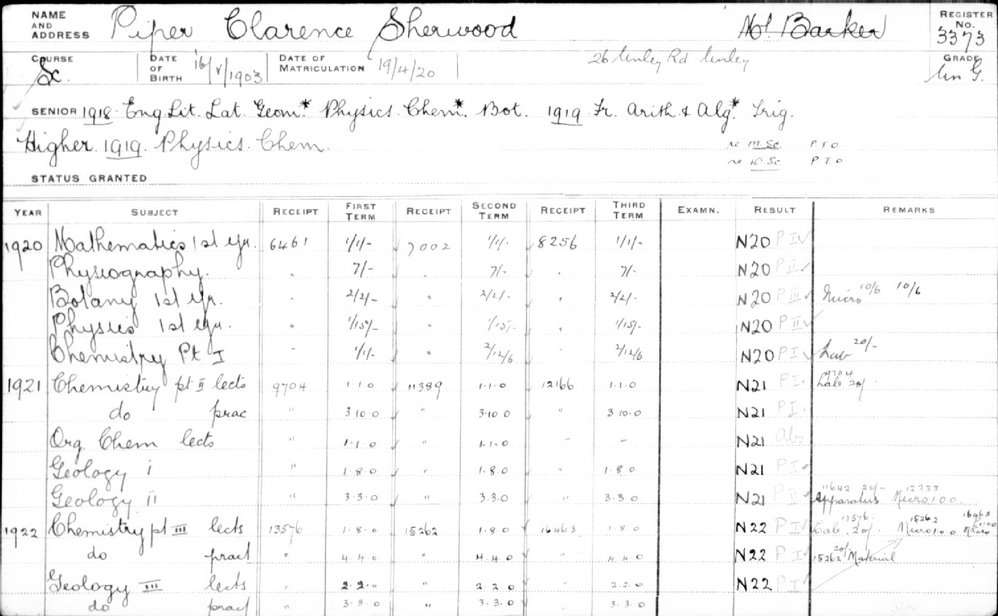 NAME AND ADDRESS Piper Clarence Sherwood Barker REGISTER No. 3373
COURSE Sc. DATE OF BIRTH 16/V/1903 DATE OF MATRICULATION 19/4/20 26 Unley Rd Unley GRADE Un G.
SENIOR 1918 Eng Lit. Lat. Geom* Physics. Chem* Bot. 1919 Fr. Arith & Alg* Trig.
Higher 1919 Physics. Chem.
re M Sc. P T O
re D Sc. P T O
STATUS GRANTED
YEAR SUBJECT RECEIPT FIRST TERM RECEIPT SECOND TERM RECEIPT THIRD TERM EXAMN. RESULT REMARKS
1920 Mathematics 1st yr. 6461 1/1/- 7002 1/1/- 8256 1/1/- N20 P IV
Physiography. " 7/- " 7/- " 7/- N20 P II
Botany 1st yr. " 2/2/- " 2/2/- " 2/2/- N20 P III Micro 10/6 10/6
Physics 1st yr. " 1/15/- " 1/15/- " 1/15/- N20 P II
Chemistry Pt I " 1/1/- " 2/12/6 " 2/12/6 N20 P I Lab 20/-
1921 Chemistry pt II lects 9704 1.1.0 11389 1.1.0 12166 1.1.0 N21 P I 9704 Lab 20/-
do prac " 3.10.0 " 3.10.0 " 3.10.0 N21 P I
Org. Chem lects " 1.1.0 " 1.1.0 - - N21 Abs
Geology i " 1.8.0 " 1.8.0 " 1.8.0 N21 P I
Geology ii " 3.3.0 " 3.3.0 " 3.3.0 N21 P I 11642 20/- Apparatus Micro 10.0
1922 Chemistry pt III lects 13576 1.8.0 15262 1.8.0 16463 1.8.0 N22 P I 13576 Lab 20/- 15262 Micro 10.0 16463 Micro
do pract " 4.4.0 " 4.4.0 " 4.4.0 N22 P I 15262 20/- Material
Geology III lects " 2.2.0 " 2.2.0 " 2.2.0 N22 P I
do pract " 3.3.0 " 3.3.0 " 3.3.0